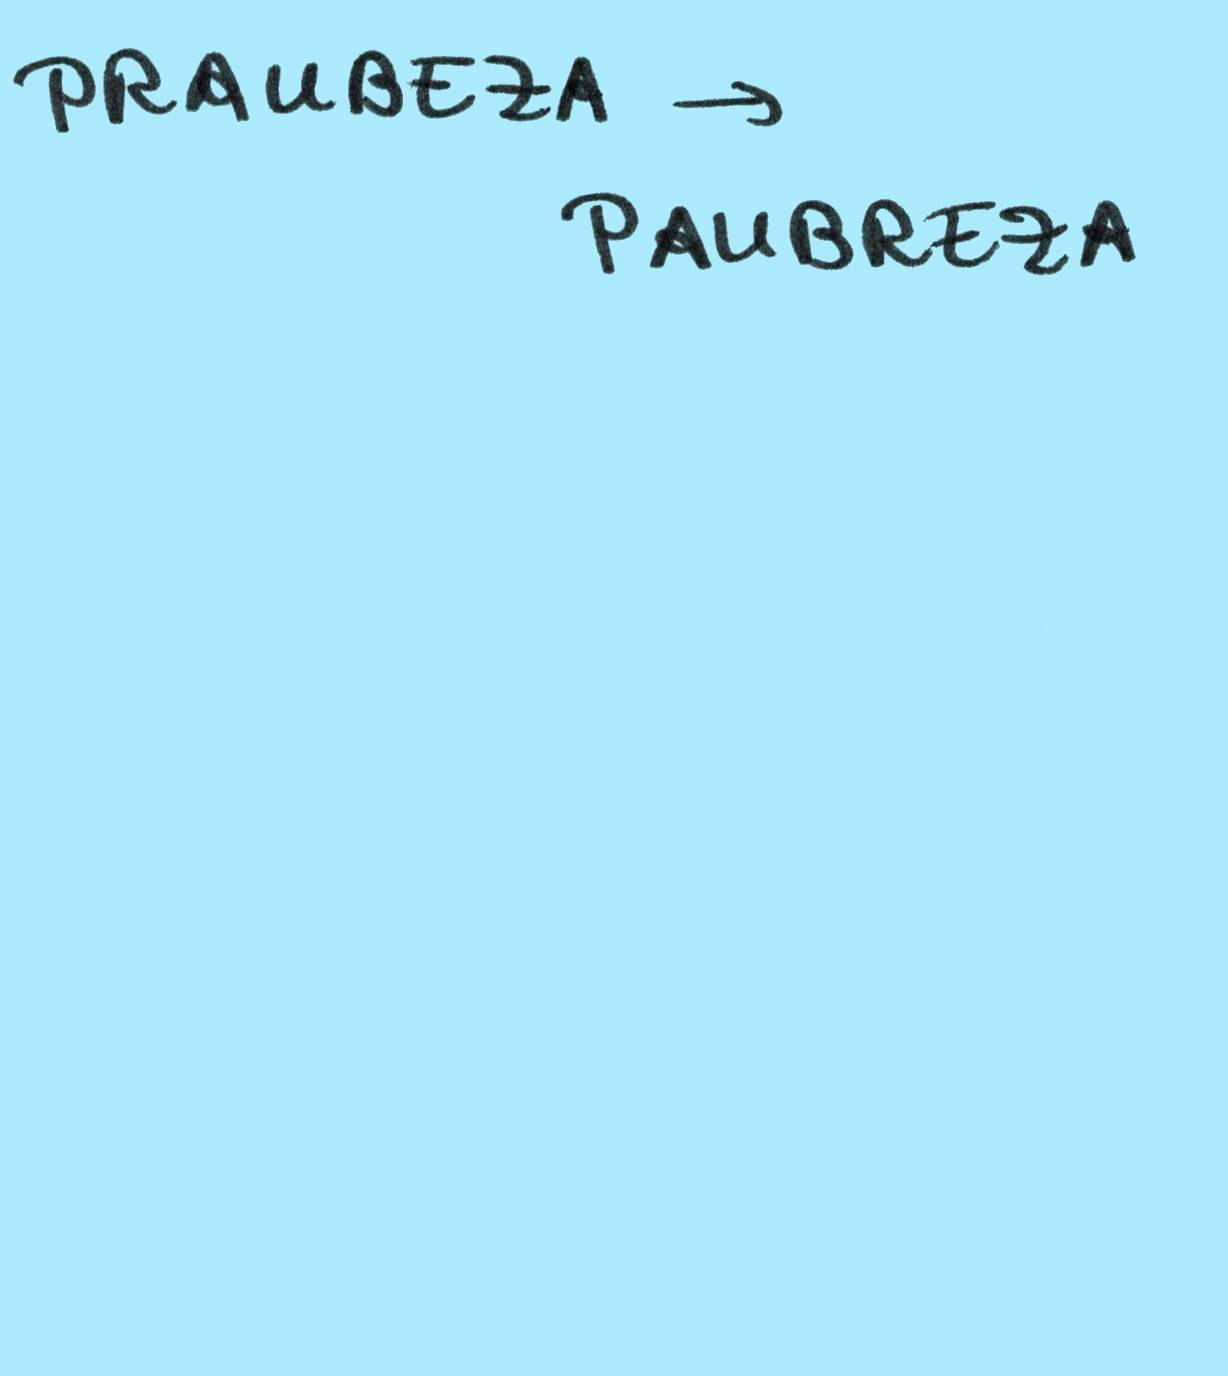 PRAUBEZA →
PAUBREZA